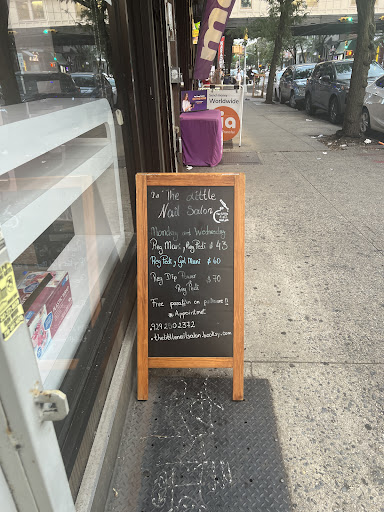 The Little
Nail Salon
Monday and Wednesday
Reg Mani, Reg Pedi $ 43
Reg Pedi, Gel Mani $ 60
Reg Dip Power
Reg Pedi $ 70
Free paraffin on pedicure !!
Appointmet
929 250 2372
thelittlenailsalon.booksy.com
Worldwide